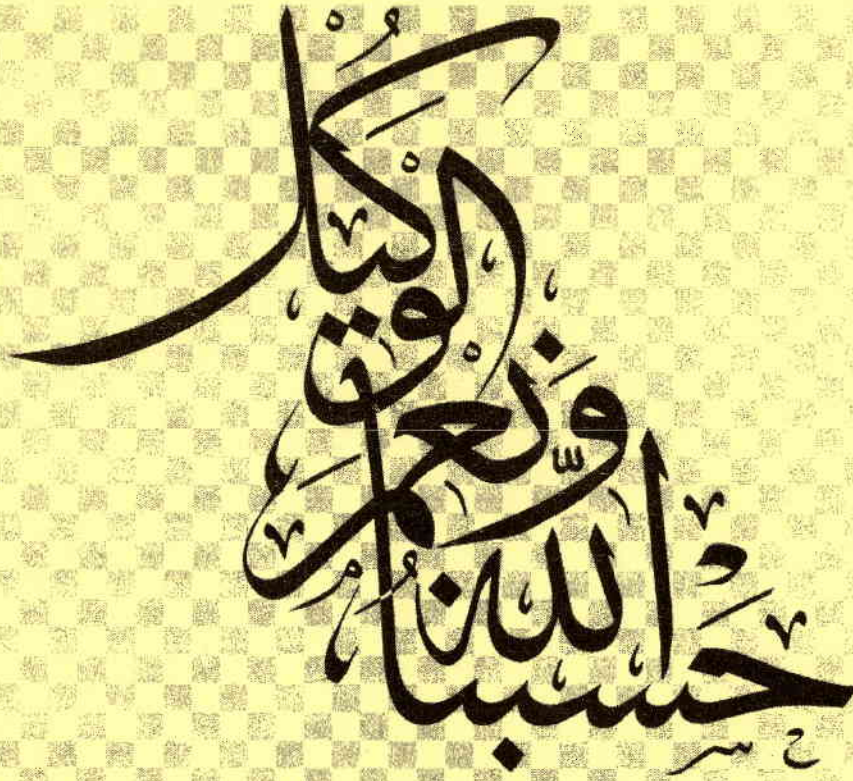 حَسْبُنَا اللّٰهُ
وَنِعْمَ
الْوَكِيلُ